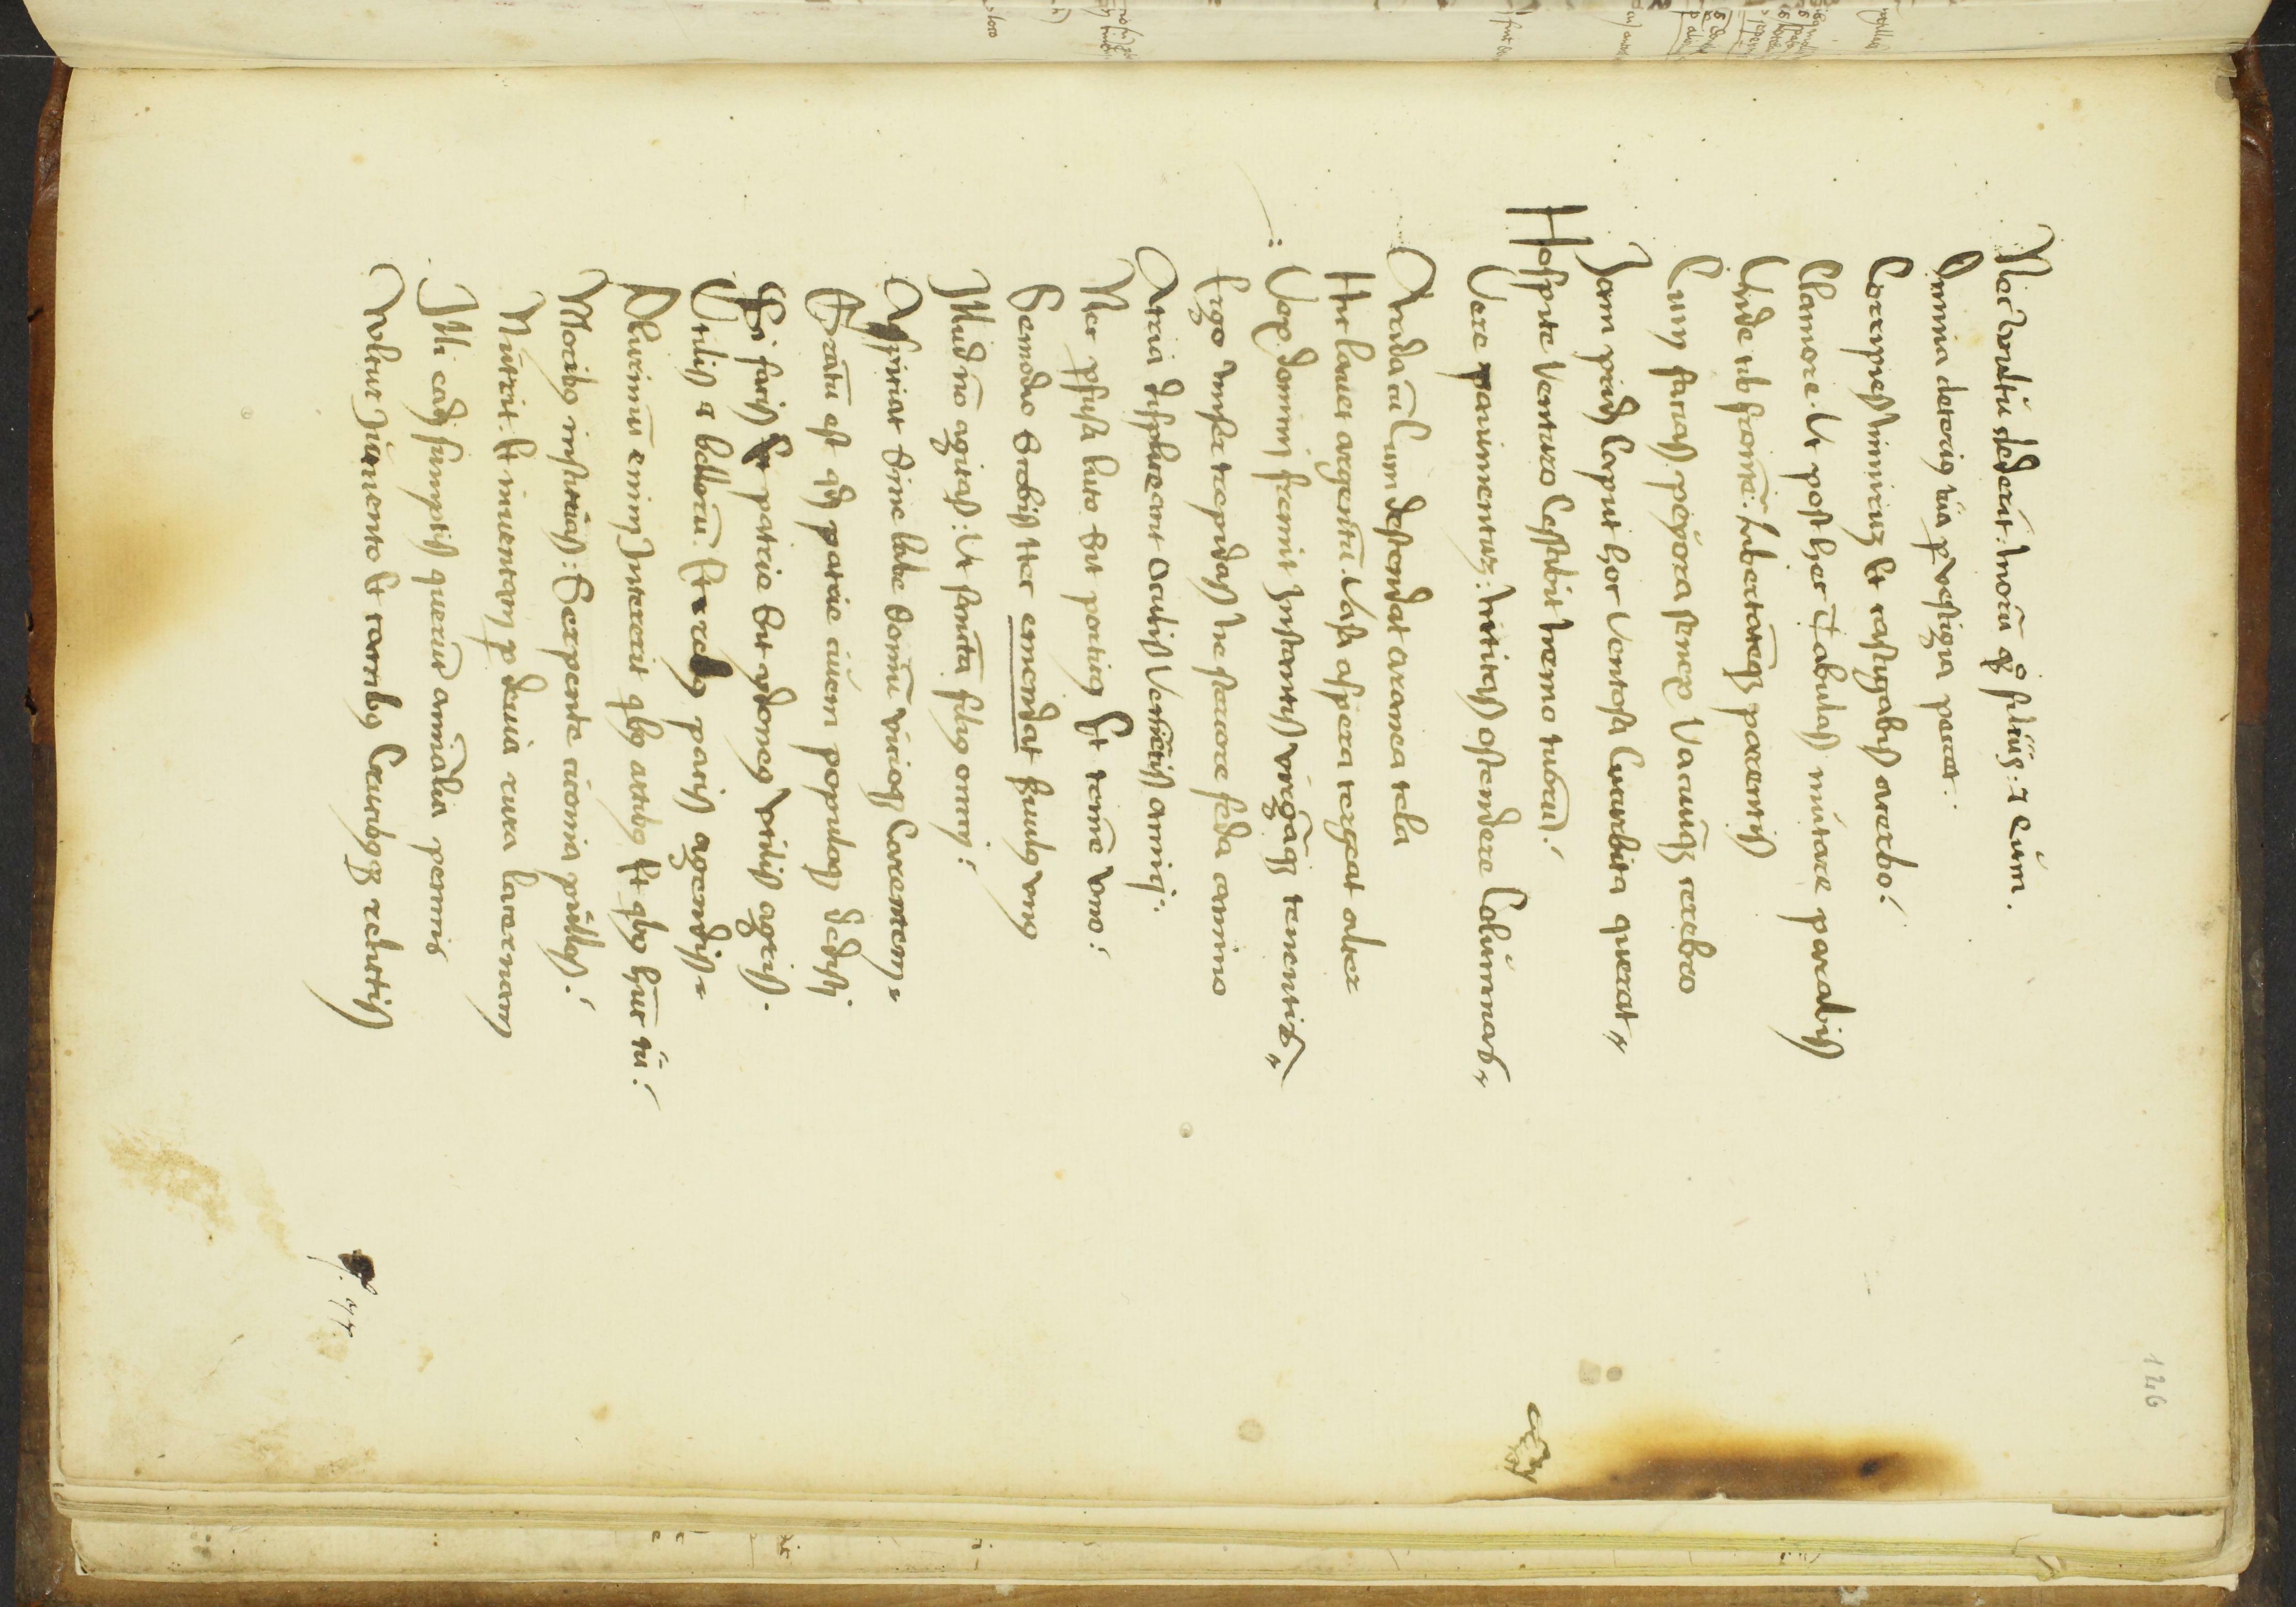 Nec vultu dederit: morū qͦ filius: & cum.
Omnia deterius tua p vestigia peccet:
Corripies nimirum Et castigabis acerbo:
Clamore. Ut post hec tabulas mutare parabis
Unde tibi frontē: libertatēqꝫ parentis
Cum facias peyora senex Vacuūqꝫ cerebro
Jam prid Caput hoc Ventosa Cucurbita querat
Hospite Venturo Cessabit nemo tuorū:
Vere pauimentum: nitidas ostendere Columnas
Arida cū Cum descendat aranea tela
Hic leue argentū. Vasa aspera tergeat alter
Vox domini fremit Instantis virgāqꝫ tenentis
Ergo miser trepidas ne stercore feda canino
Atria displiceant oculis Venientis amici:
Nec pfusa luto sit porticus Et tamē vno:
Semodio scobis hec emendat seruulus vnus
Illud nō agitas: Ut sanctā filius omni:
Aspiciat sine labe domū vicioqꝫ Carentem
Gratū est qd patrie ciuem populoqꝫ dedisti
Si facis patrie sit ydoneus vtilis agris.
Utilis & bellorū. Et rebus pacis agendis
Plurimū enim Intererit qbus artibus Et qbus hūc tu:
Moribus instituas: Serpente ciconia pullos:
Nutrit. Et inuentam p deuia rura lacertam
Illi ead sumptis querūt animalia pennis
Voltur Jumento Et canibus Crucibusqꝫ relictis
126